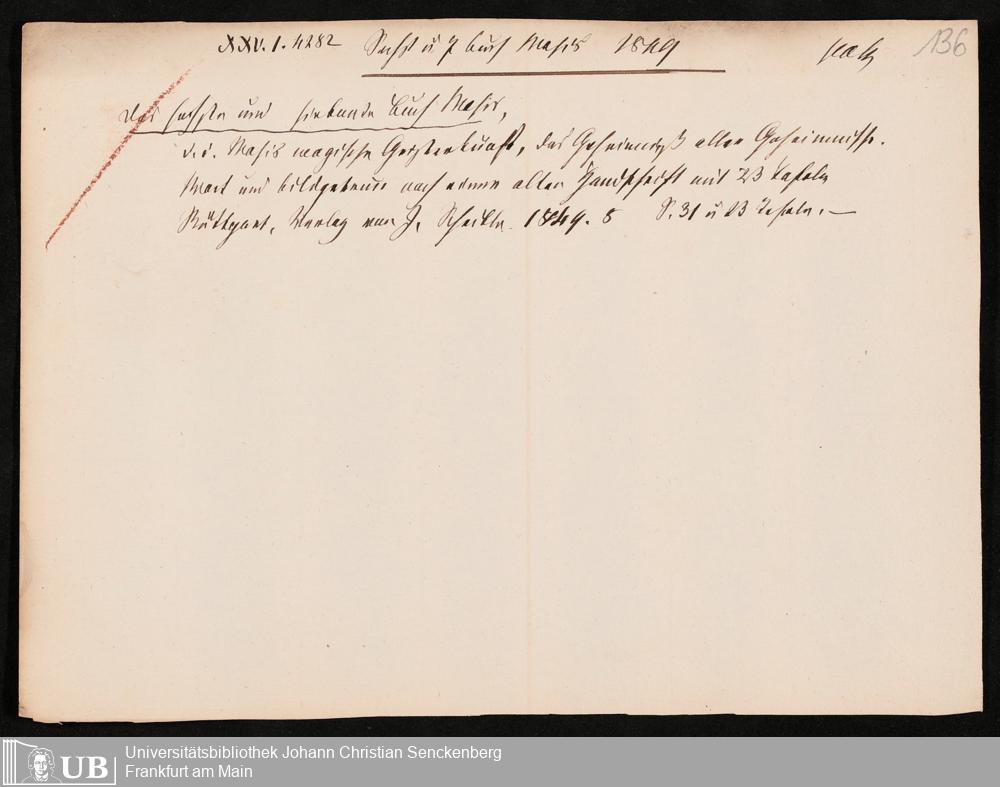 XXV. 1. 4282 Sechst u 7 Buch Mosis 1849 136
Das sechste und siebente Buch Mosis,
d. i. Mosis magische Geisterkunst, das Geheimniß aller Geheimnisse.
Wort und bildgetreu nach einer alten Handschrift mit 23 Tafeln
Stuttgart, Verlag von J. Scheible. 1849. 8 S. 31 u 23 Tafeln. —
UB
Universitätsbibliothek Johann Christian Senckenberg
Frankfurt am Main